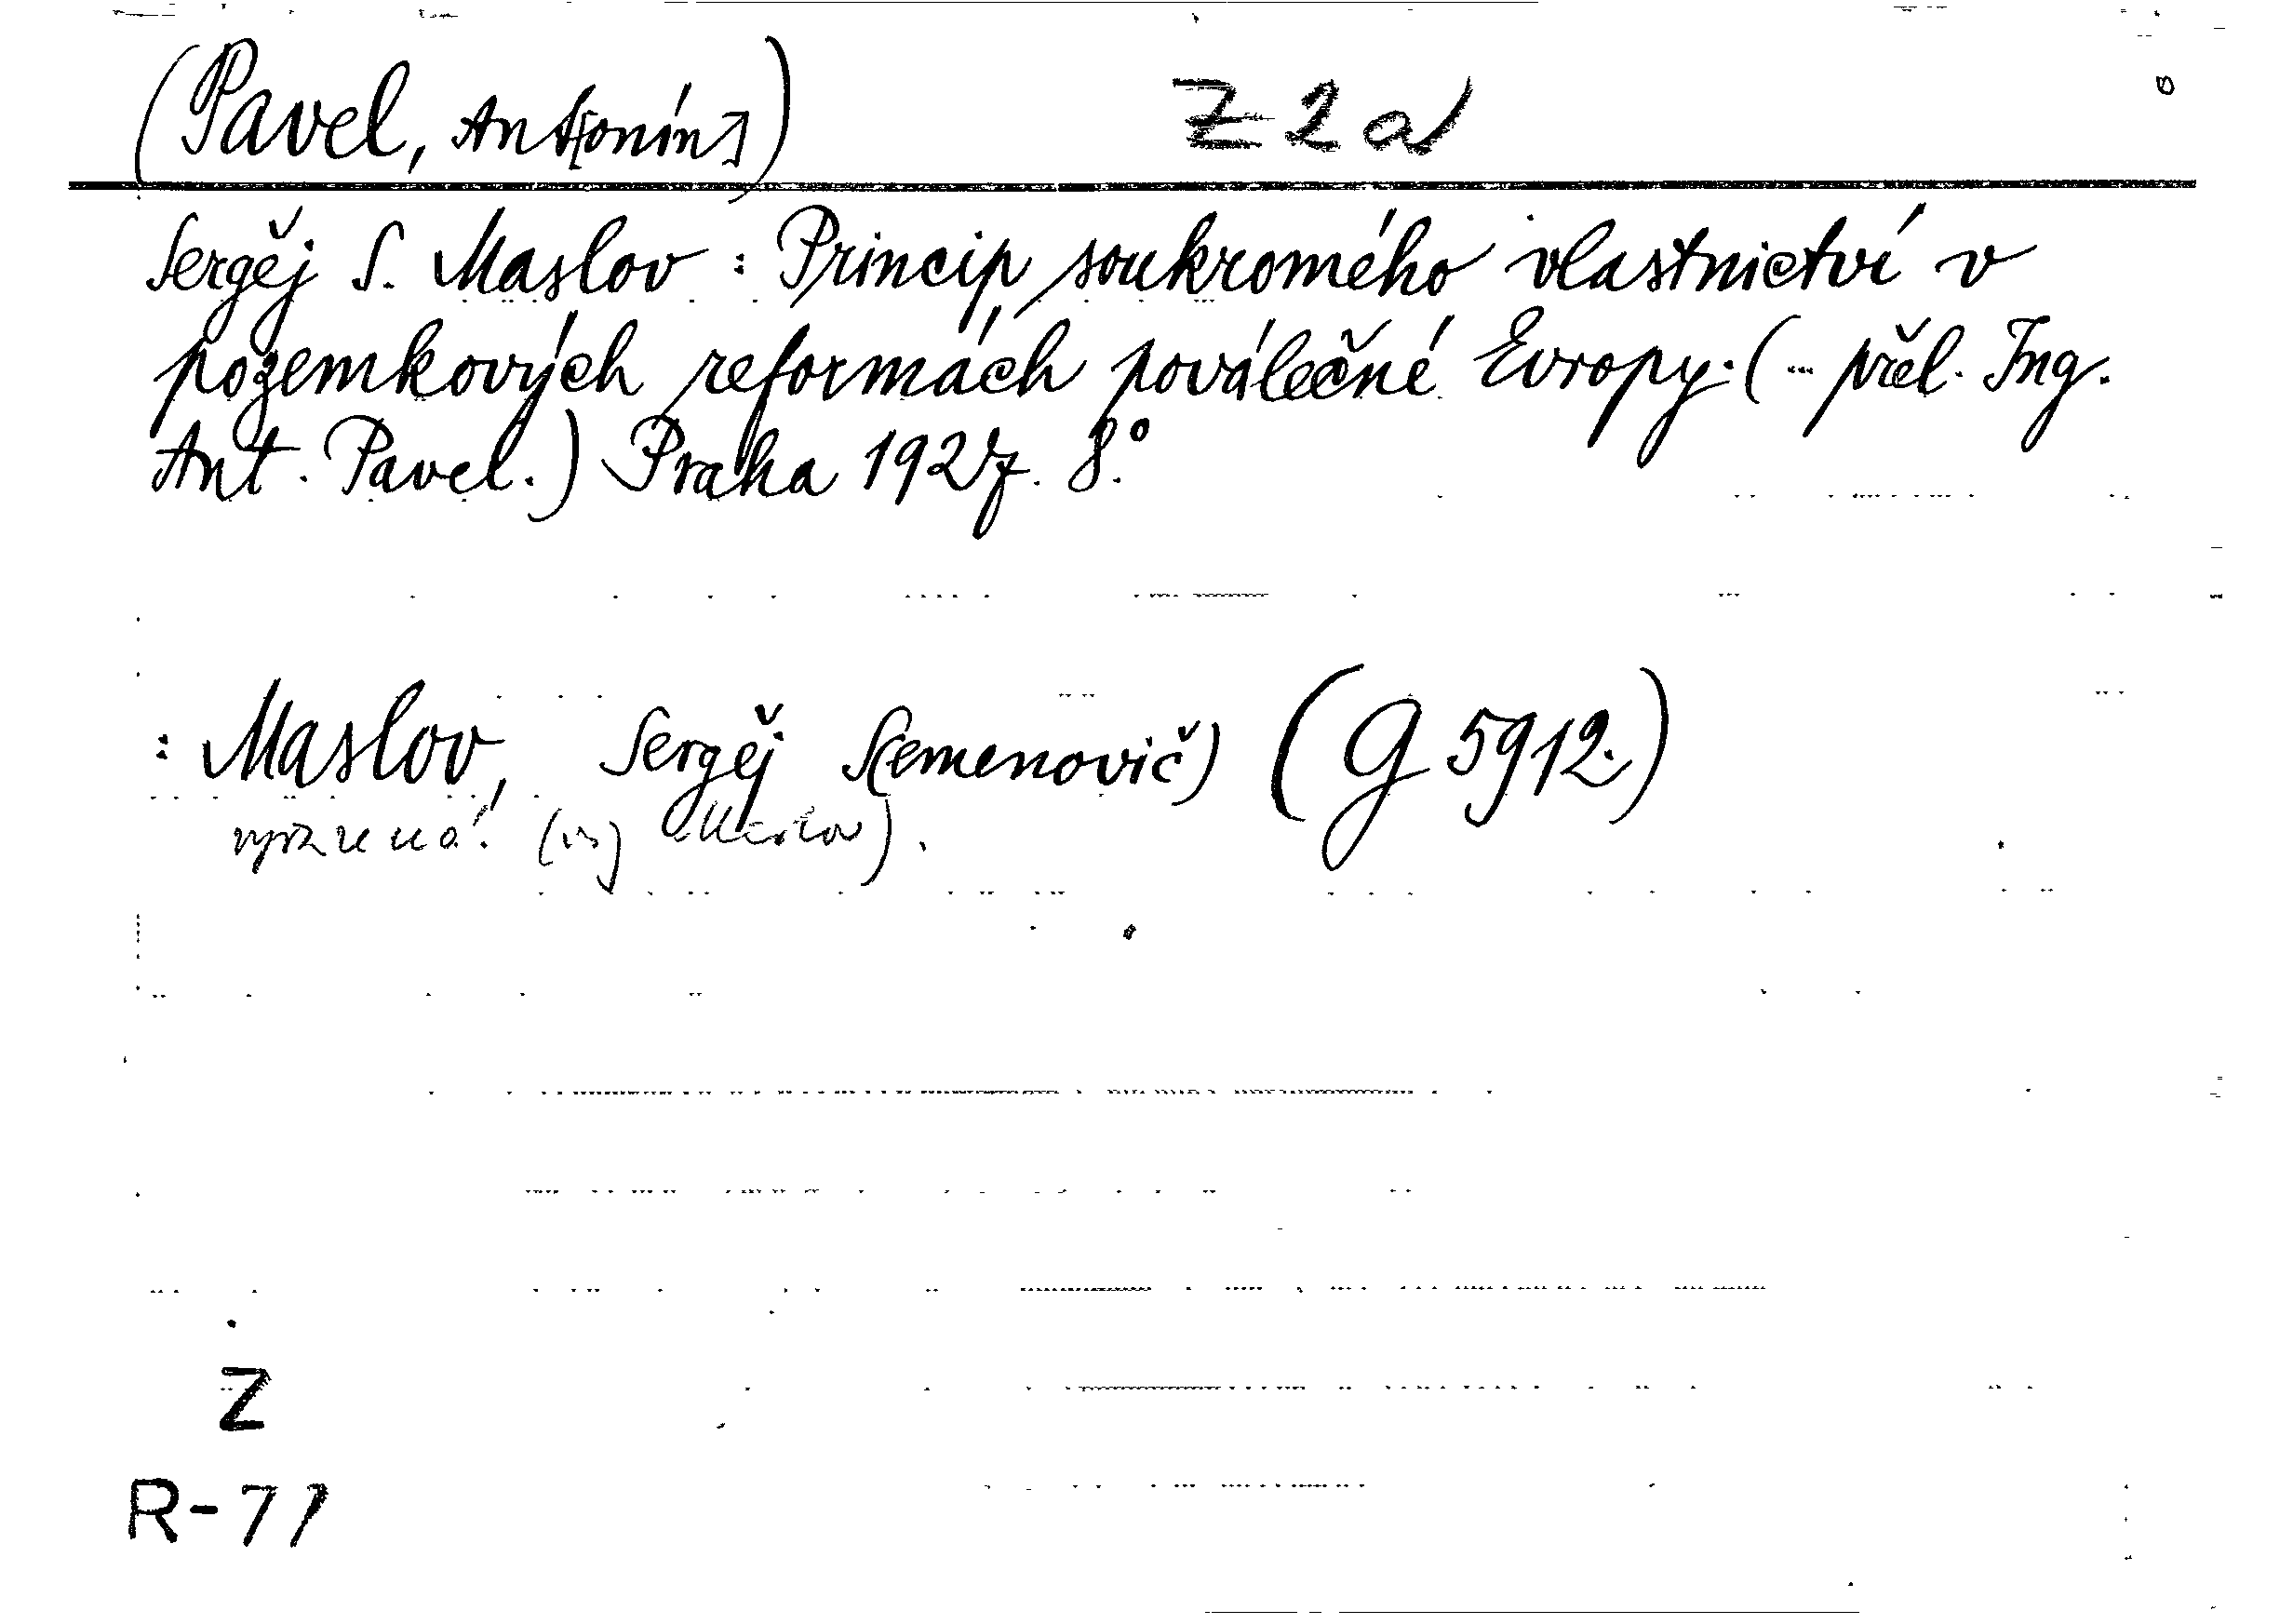 (Pavel, Ant[onín]) Z 2 a
Sergěj S. Maslov : Princip soukromého vlastnictví v
pozemkových reformách poválečné Evropy. (... přel. Ing.
Ant. Pavel.) Praha 1927. 8.°
: Maslov, Sergěj S(emenovič) (G 5912.)
(viz Maslov).
Z
R-77